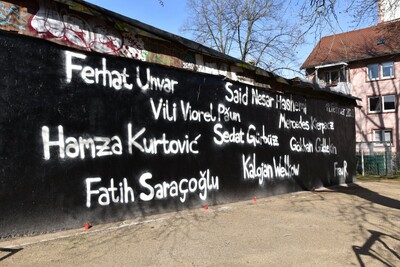 Ferhat Unvar
Said Nesar Hashemi
Vili Viorel Păun
Mercedes Kierpacz
Hamza Kurtović
Sedat Gürbüz
Gökhan Gültekin
Fatih Saraçoğlu
Kalojan Velkov